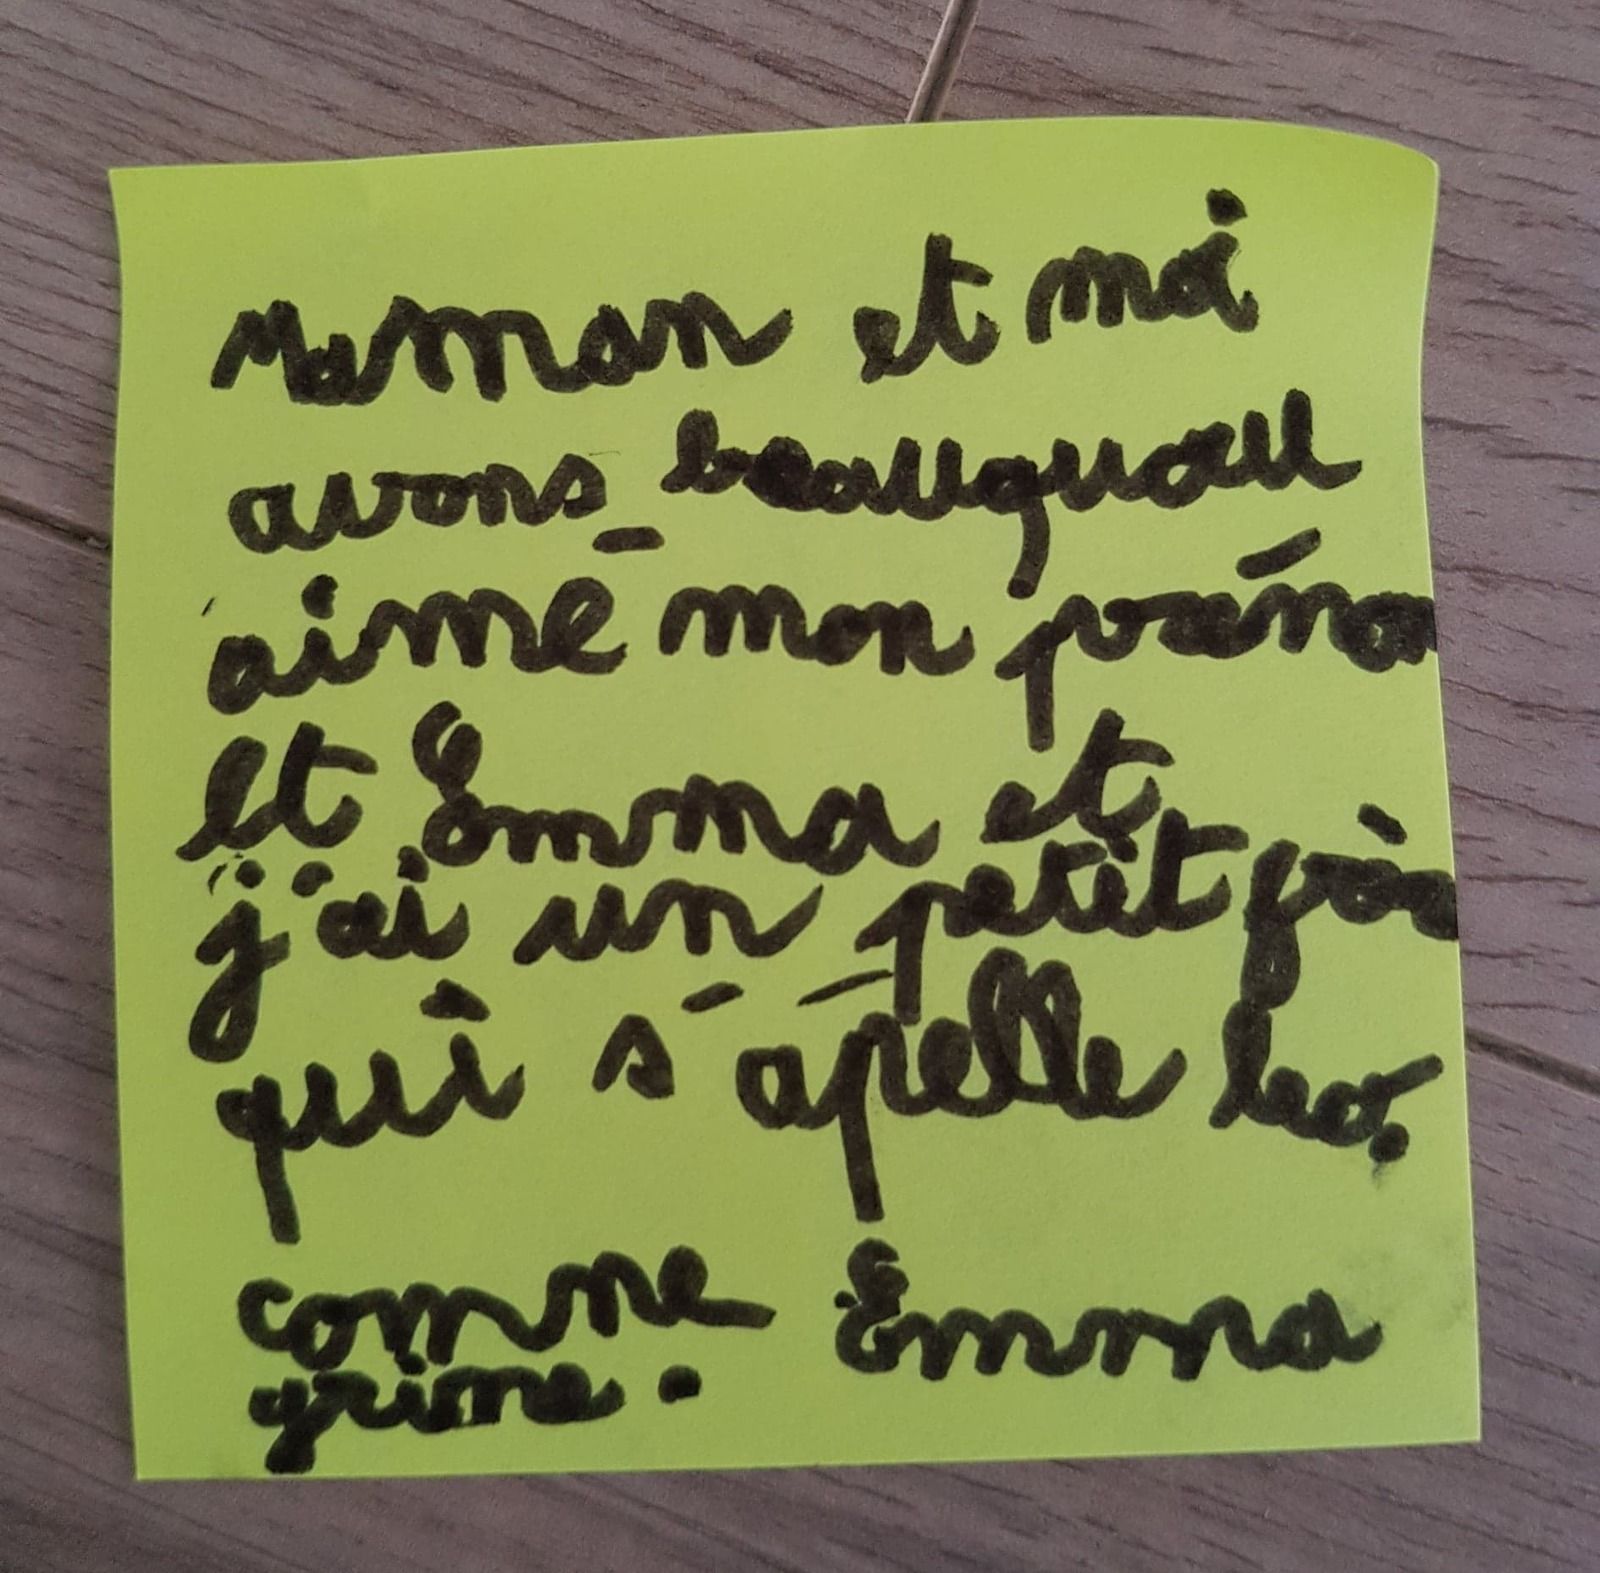 Maman et moi
avons beauquou
aimé mon préno
et Emma et
j'ai un petit frèr
qui s'apelle leo.
comme Emma
grime.